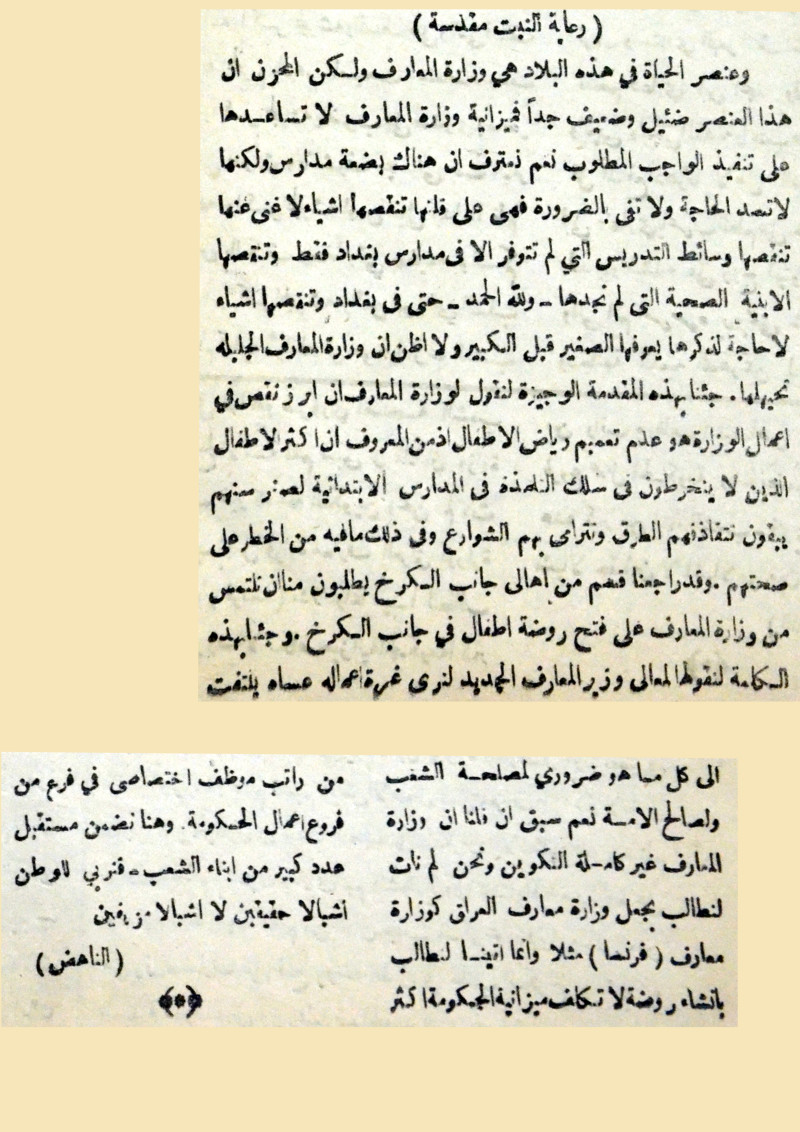 ( رعاية النبت مقدسة )
وعنصر الحياة في هذه البلاد هي وزارة المعارف ولكن المحزن ان
هذا العنصر ضئيل وضعيف جداً فميزانية وزارة المعارف لا تساعدها
على تنفيذ الواجب المطلوب نعم نعترف ان هناك بضعة مدارس ولكنها
لا تسد الحاجة ولا تفي بالضرورة فهي على قلتها تنقصها اشياء لا غنى عنها
تنقصها وسائط التدريس التي لم تتوفر الا في مدارس بغداد فقط وتنقصها
الابنية الصحية التي لم نجدها ــ ولله الحمد ــ حتى في بغداد وتنقصها اشياء
لا حاجة لذكرها يعرفها الصغير قبل الكبير ولا اظن ان وزارة المعارف الجليله
تجهلها . جئنا بهذه المقدمة الوجيزة لنقول لوزارة المعارف ان ابرز نقص في
اعمال الوزارة هو عدم تعميم رياض الاطفال اذ من المعروف ان اكثر الاطفال
الذين لا ينخرطون في سلك التلمذة في المدارس الابتدائية لصغر سنهم
يبقون تتقاذفهم الطرق وتترامى بهم الشوارع وفي ذلك مافيه من الخطر على
صحتهم . وقد راجعنا قسم من اهالى جانب الكرخ يطلبون منا ان نلتمس
من وزارة المعارف على فتح روضة اطفال في جانب الكرخ . وجئنا بهذه
الكلمة لنقولها لمعالى وزير المعارف الجديد لنرى غرة اعماله عساه يلتفت
الى كل ما هو ضروري لمصلحة الشعب
ولصالح الامة نعم سبق ان قلنا ان وزارة
المعارف غير كاملة التكوين ونحن لم نات
لنطالب بجعل وزارة معارف العراق كوزارة
معارف ( فرنسا ) مثلا وانما اتينا لنطالب
بانشاء روضة لا تكلف ميزانية الحكومة اكثر
من راتب موظف اختصاصى في فرع من
فروع اعمال الحكومة . وهنا نضمن مستقبل
عدد كبير من ابناء الشعب ــ فنربي للوطن
اشبالا حقيقين لا اشبالا مزيفين
( الناهض )